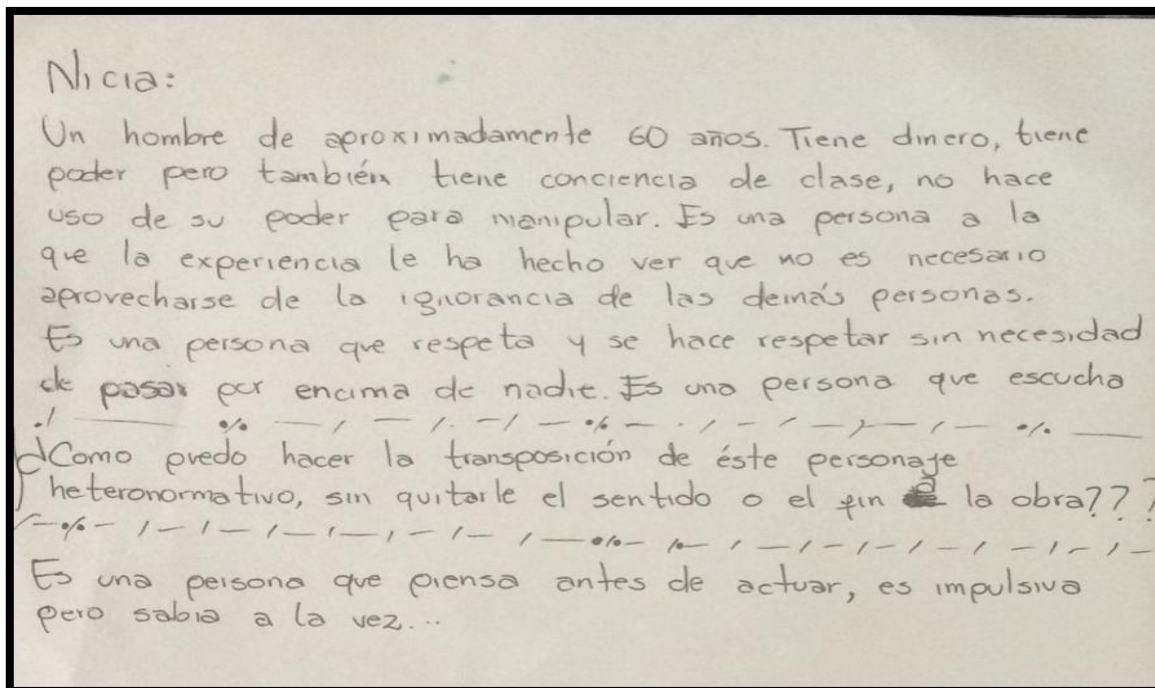 Nicia:
Un hombre de aproximadamente 60 años. Tiene dinero, tiene
poder pero también tiene conciencia de clase, no hace
uso de su poder para manipular. Es una persona a la
que la experiencia le ha hecho ver que no es necesario
aprovecharse de la ignorancia de las demás personas.
Es una persona que respeta y se hace respetar sin necesidad
de pasar por encima de nadie. Es una persona que escucha
¿Como puedo hacer la transposición de éste personaje
heteronormativo, sin quitarle el sentido o el fin a la obra???
Es una persona que piensa antes de actuar, es impulsiva
pero sabia a la vez...